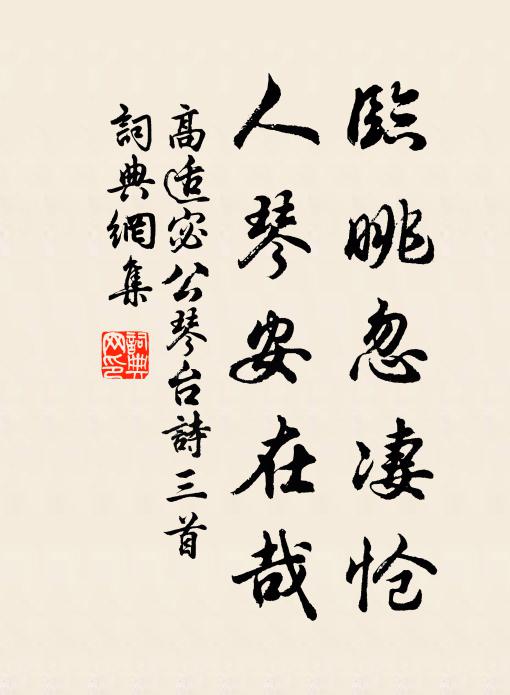 臨眺忽凄愴
人琴安在哉
高适宓公琴台詩三首
詞典網集
詞典
网印